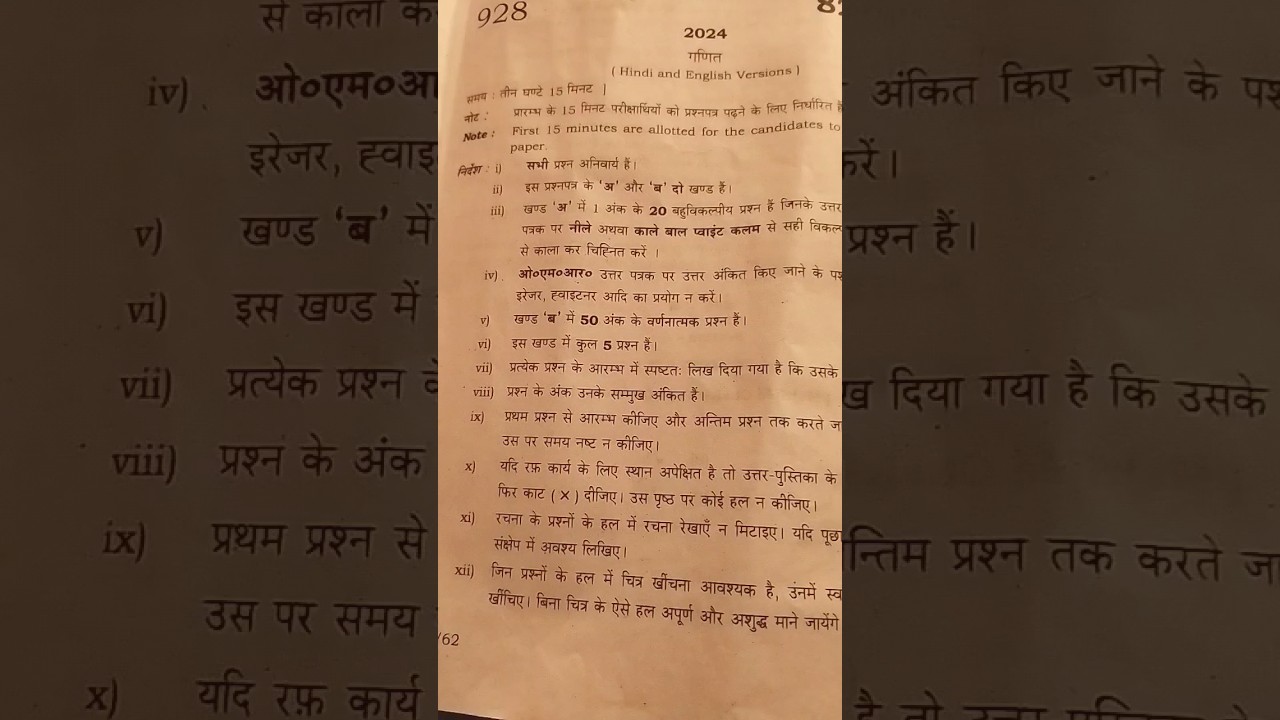 928
2024
गणित
( Hindi and English Versions )
समय : तीन घण्टे 15 मिनट ]
नोट : प्रारम्भ के 15 मिनट परीक्षार्थियों को प्रश्नपत्र पढ़ने के लिए निर्धारित
Note : First 15 minutes are allotted for the candidates to
paper.
निर्देश : i) सभी प्रश्न अनिवार्य हैं।
ii) इस प्रश्नपत्र के 'अ' और 'ब' दो खण्ड हैं।
iii) खण्ड 'अ' में 1 अंक के 20 बहुविकल्पीय प्रश्न हैं जिनके उत्तर
पत्रक पर नीले अथवा काले बाल प्वाइंट कलम से सही
से काला कर चिह्नित करें ।
iv) ओ०एम०आर० उत्तर पत्रक पर उत्तर अंकित किए जाने के
इरेजर, ह्वाइटनर आदि का प्रयोग न करें।
v) खण्ड 'ब' में 50 अंक के वर्णनात्मक प्रश्न हैं।
vi) इस खण्ड में कुल 5 प्रश्न हैं।
vii) प्रत्येक प्रश्न के आरम्भ में स्पष्टतः लिख दिया गया है कि उसके
viii) प्रश्न के अंक उनके सम्मुख अंकित हैं।
ix) प्रथम प्रश्न से आरम्भ कीजिए और अन्तिम प्रश्न तक करते
उस पर समय नष्ट न कीजिए।
x) यदि रफ़ कार्य के लिए स्थान अपेक्षित है तो उत्तर-पुस्तिका के
फिर काट ( × ) दीजिए। उस पृष्ठ पर कोई हल न कीजिए।
xi) रचना के प्रश्नों के हल में रचना रेखाएँ न मिटाइए। यदि
संक्षेप में अवश्य लिखिए।
xii) जिन प्रश्नों के हल में चित्र खींचना आवश्यक है, उनमें
खींचिए। बिना चित्र के ऐसे हल अपूर्ण और अशुद्ध माने जायेंगे
/62